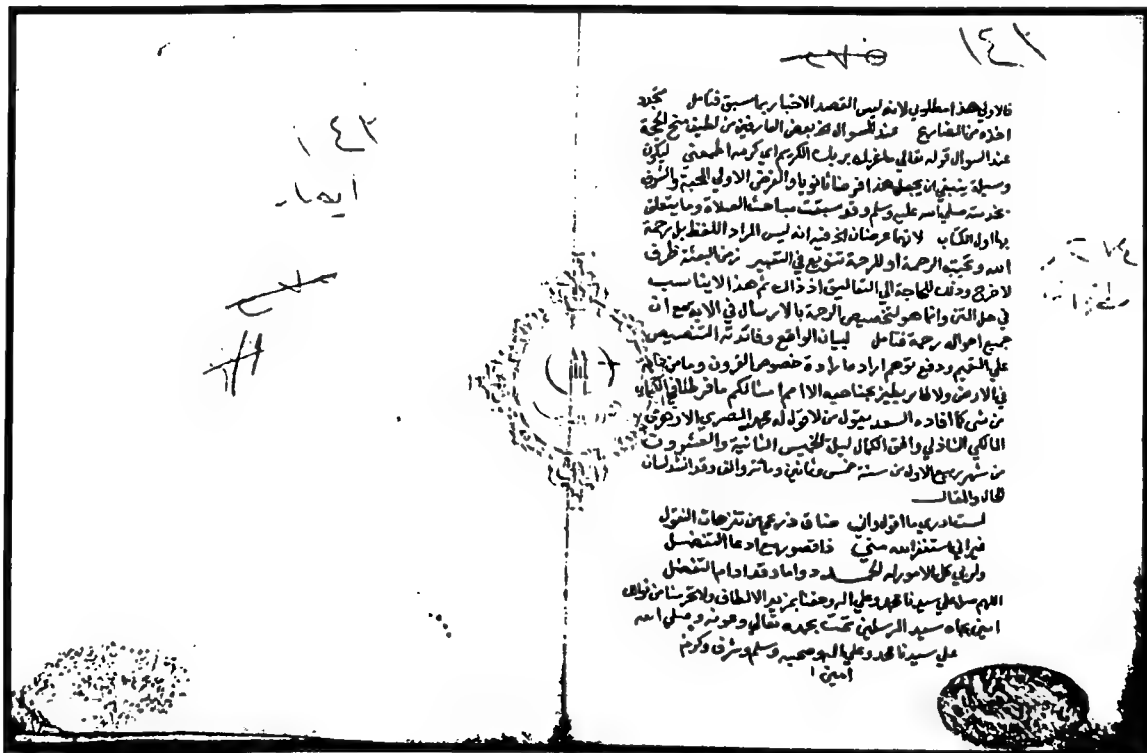 ١٤٢
فالاولي هذا مطلوبي لانه ليس القصد الاخبار بما سبق فتامل
اخذه من المضارع عند السوال اخذ بعض العارفين من لطيف منح الحجة
عند السوال قوله تعالي ما غرك بربك الكريم اي كرمه اطمعني ليكون
وسيلة ينبغي ان يجعل هذا غرضا ثانويا والغرض الاولي المحبة والتشرف
بخدمته صلي الله عليه وسلم وقد سبقت مباحث الصلاة وما يتعلق
بها اول الكتاب لانهما عرضان اخ فيه انه ليس المراد اللفظ بل رحمة
الله وتحيته الرحمة او للرحمة تنويع في التعبير زمن البعثة ظرف
لاخرج وذلك للحاجة الي التعاليق اذ ذاك ثم هذا لا يناسب
في حل المتن وانما هو لتخصيص الرحمة بالارسال في الاية مع ان
جميع احواله رحمة فتامل لبيان الواقع وفائدته التنصيص
علي التعميم ودفع توهم ارادة خصوص القرون وما من دابة
في الارض ولا طائر يطير بجناحيه الا امم امثالكم ما فرطنا في الكتاب
من شي كما افاده السعد يقول من لا قول له محمد المصري الازهري
المالكي الشاذلي وافق الكمال ليلة الخميس الثانية والعشرون
من شهر ربيع الاول من سنة خمس وثمانين ومائة والف وقد انشد لسان
الحال والمقال
لست ادري ما اقول واني ضاق ذرعي من ترهات النقول
غير اني استغفر الله مني فاقصور مع ادعا التفضل
ولربي كل الامور له الحمد دواما دقد ادام التفضل
اللهم صل علي سيدنا محمد وعلي اله وحفنا بمزيد الالطاف ولا تحرمنا من نواله
امين بجاه سيد المرسلين تمت بحمده تعالي وعونه وصلي الله
علي سيدنا محمد وعلي اله وصحبه وسلم وشرف وكرم
امين
٢٤١